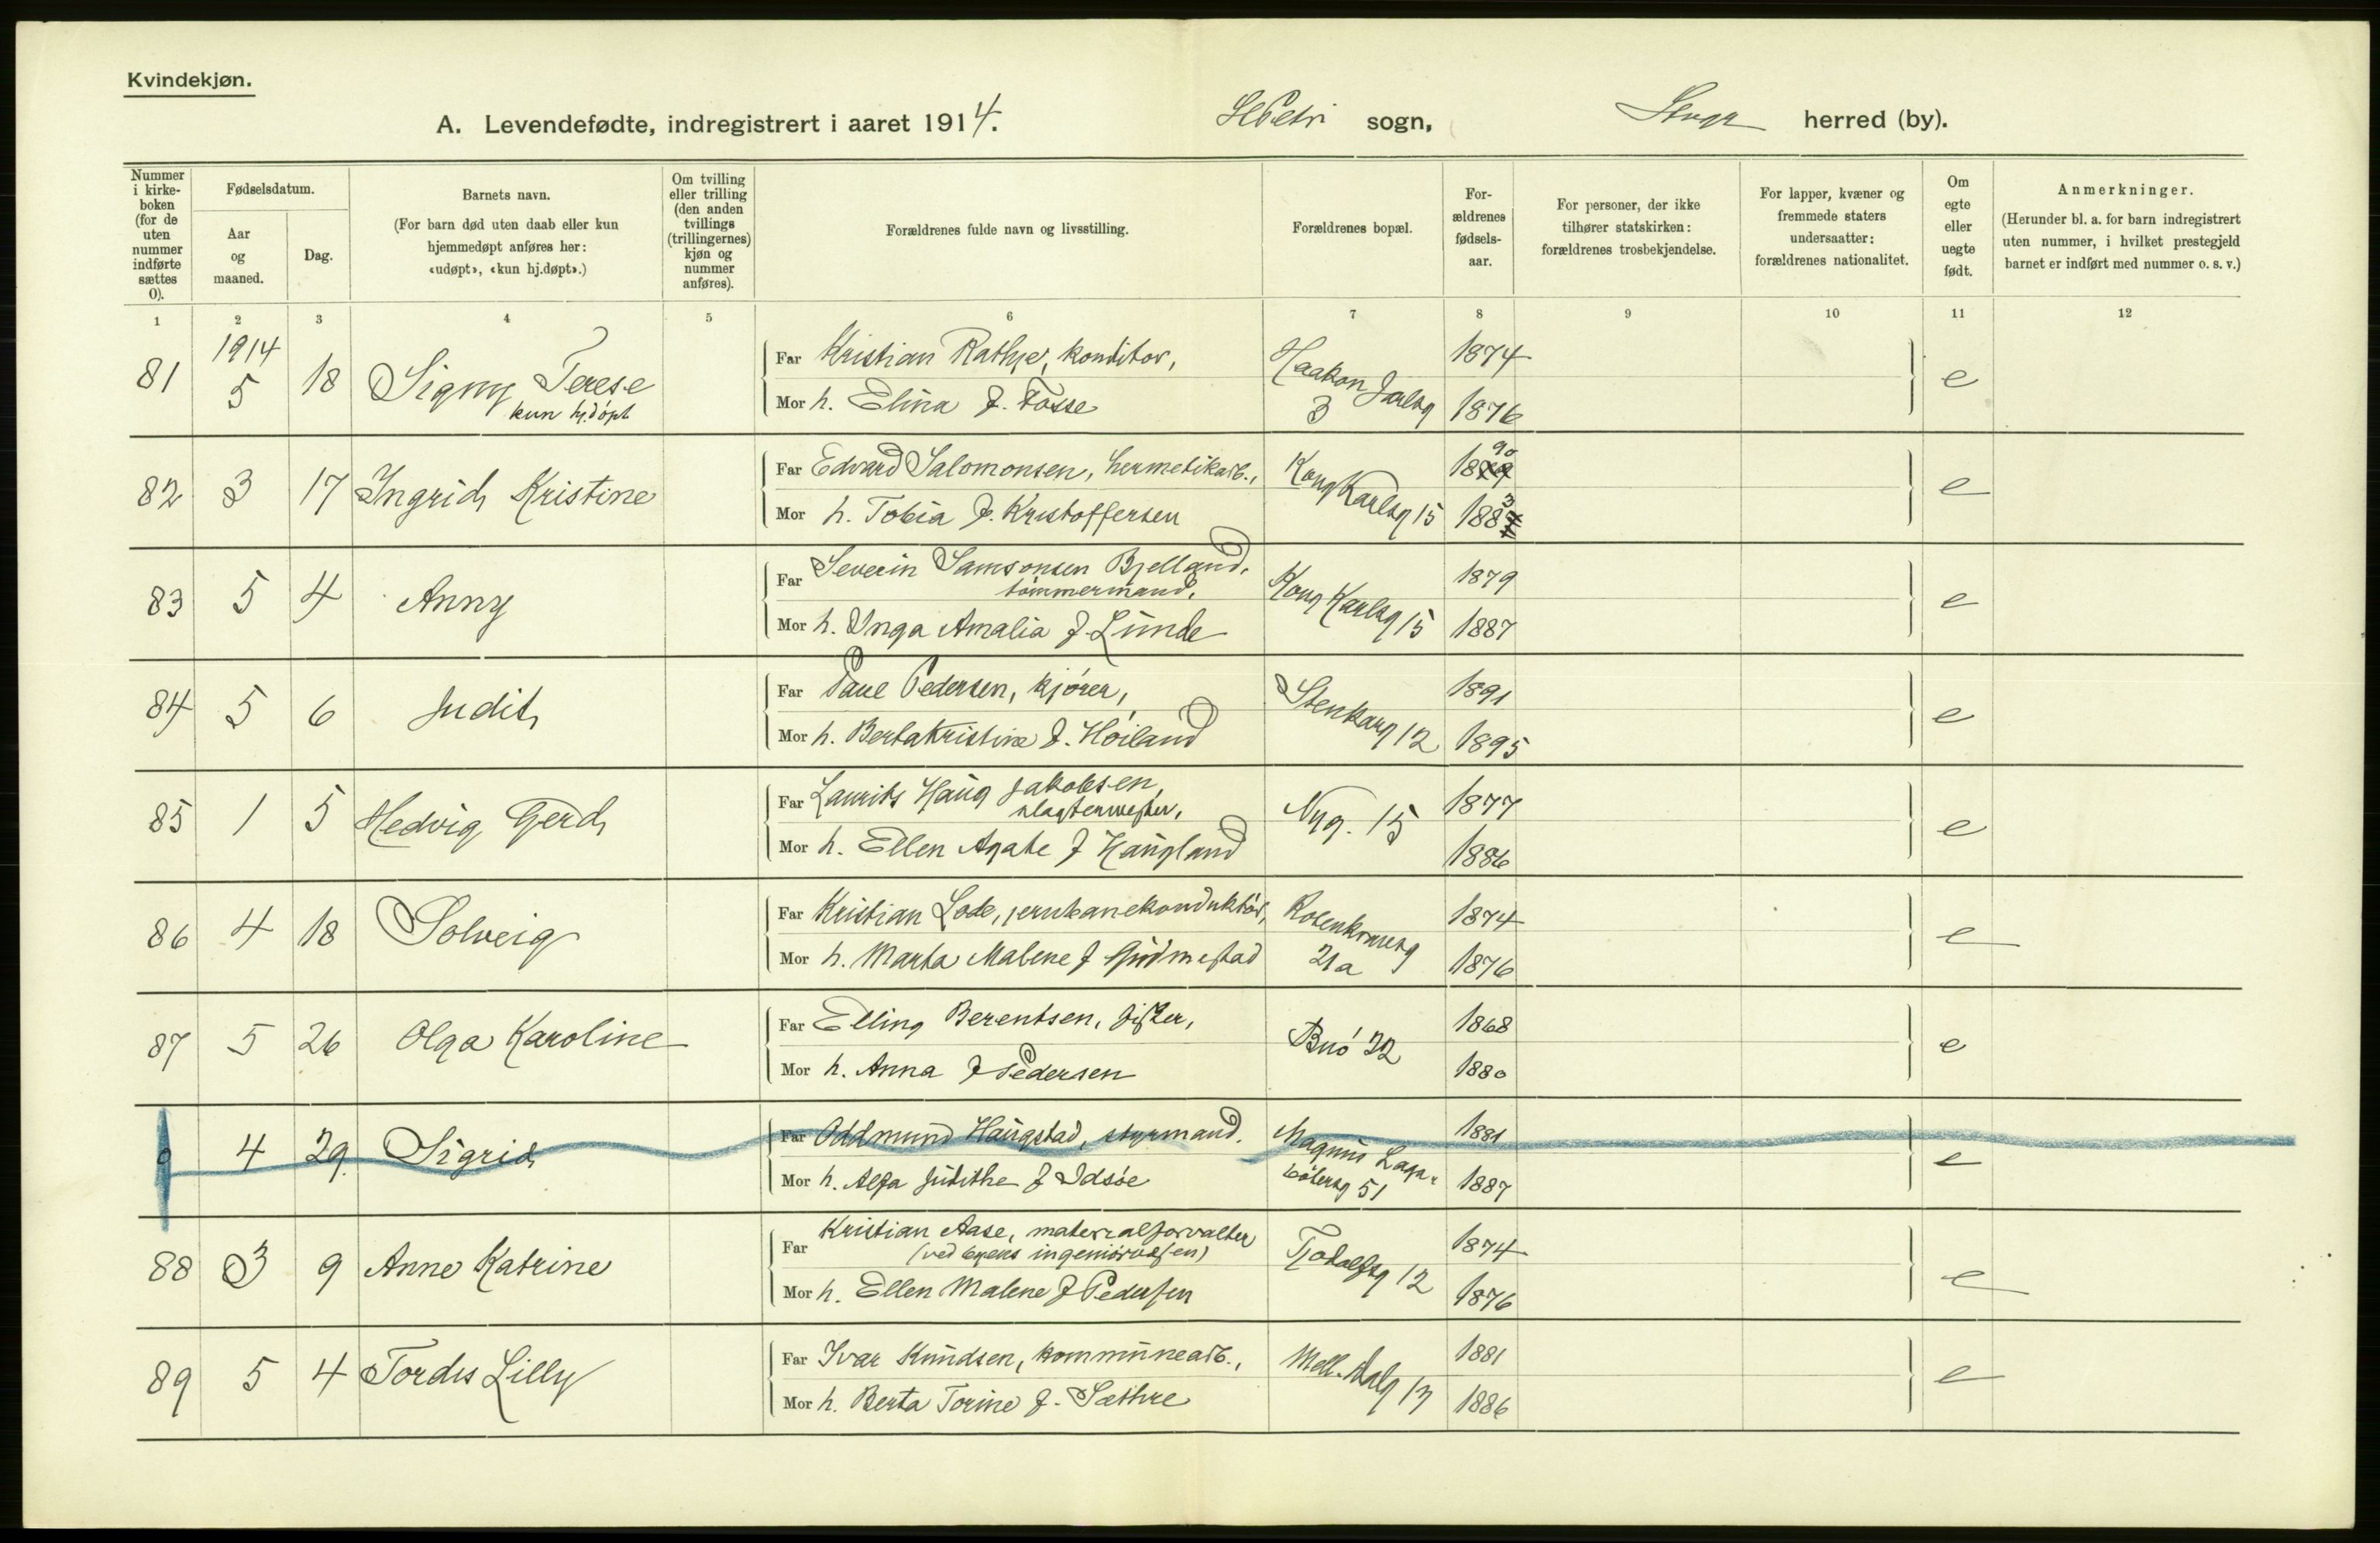 Kvindekjøn.
A. Levendefødte, indregistrert i aaret 1914.
St Petri sogn,
herred (by).
Nummer i kirke-boken (for de uten nummer indførte sættes 0).
Fødselsdatum.
Aar og maaned.
Dag.
Barnets navn.
(For barn død uten daab eller kun hjemmedøpt anføres her: «udøpt», «kun hj.døpt».)
Om tvilling eller trilling (den anden tvillings (trillingernes) kjøn og nummer anføres).
Forældrenes fulde navn og livsstilling.
Forældrenes bopæl.
For-ældrenes fødsels-aar.
For personer, der ikke tilhører statskirken: forældrenes trosbekjendelse.
For lapper, kvæner og fremmede staters undersaatter: forældrenes nationalitet.
Om egte eller uegte født.
Anmerkninger.
(Herunder bl. a. for barn indregistrert uten nummer, i hvilket prestegjeld barnet er indført med nummer o. s. v.)
1 2 3 4 5 6 7 8 9 10 11 12
1914
81 5 18 Signy Terese
kun hj.døpt
Far Kristian Rathje, konditor,
Mor h. Elina f. Fosse
Haakon Jarlsg 3
1874
1876
e
82 3 17 Ingrid Kristine
Far Edvard Salomonsen, hermetikarb.,
Mor h. Tobia f. Kristoffersen
Kong Karlsg 15
1890
1883
e
83 5 4 Anny
Far Severin Samsonsen Bjelland,
tømmermand,
Mor h. Inga Amalia f. Lunde
Kong Karlsg 15
1879
1887
e
84 5 6 Judith
Far Paul Pedersen, kjører,
Mor h. Berta Kristine f. Høiland
Stenkarg 12
1891
1895
e
85 1 5 Hedvig Gerd
Far Laurits Haug Jakobsen,
slagtermester,
Mor h. Ellen Agate f Haugland
Nyg. 15
1877
1886
e
86 4 18 Solveig
Far Kristian Lode, jernbanekonduktør,
Mor h. Marta Malene f Gudmestad
Rosenkrantsg 21a
1874
1876
e
87 5 26 Olga Karoline
Far Elling Berentsen, fisker,
Mor h. Anna f Pedersen
Buø 22
1868
1880
e
0 4 29. Sigrid
Far Oddmund Haugstad, styrmand.
Mor h. Alfa Judithe f Idsøe
Magnus Laga-
bøtersg 51
1881
1887
e
88 3 9 Anne Katrine
Far Kristian Aase, materialforvalter
(ved byens ingeniørvesen)
Mor h. Ellen Malene f Pedersen
Tjodolfsg 12
1874
1876
e
89 5 4 Tordis Lilly
Far Ivar Knudsen, kommunearb.,
Mor h. Berta Torine f. Sæthre
1881
1886
e